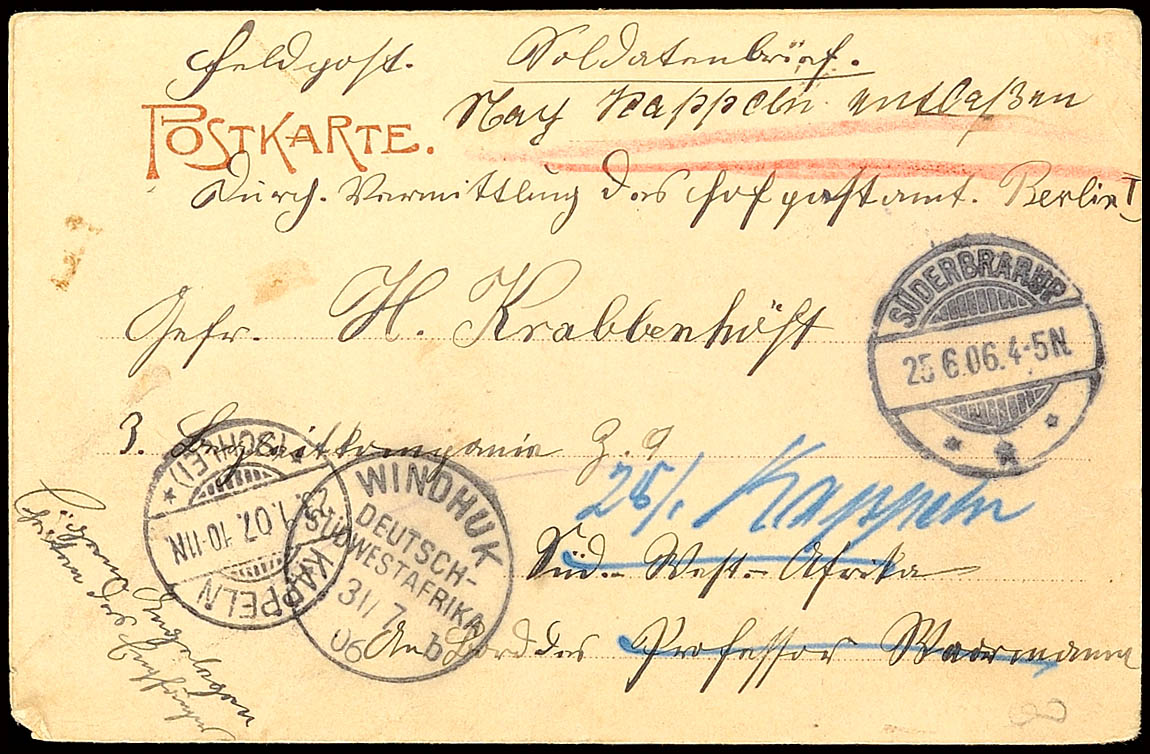 Feldpost. Soldatenbrief.
Nach Kappeln entlaßen
POSTKARTE.
Durch Vermittlung des Hofpostamt. Berlin I
Gefr. H. Krabbenhöft
SÜDERBRARUP
25.6.06.4-5N.
3. Ersatzkompanie Z. 9
25/1 Kappeln
WINDHUK
DEUTSCH-
SÜDWESTAFRIKA
31/7
06 b
KAPPELN
(SCHLEI)
23.1.07.10-11N
Süd-West-Afrika
An Bord des Professor Woermann
Zurück
des Empfängers